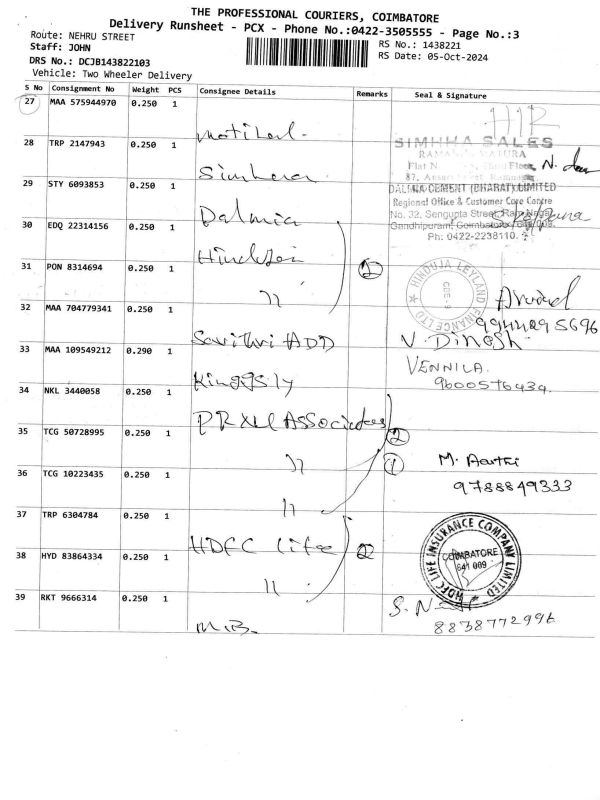 THE PROFESSIONAL COURIERS, COIMBATORE
Delivery Runsheet - PCX - Phone No.:0422-3505555 - Page No.:3
Route: NEHRU STREET
RS No.: 1438221
Staff: JOHN
RS Date: 05-Oct-2024
DRS No.: DCJB143822103
Vehicle: Two Wheeler Delivery
S No Consignment No Weight PCS Consignee Details Remarks Seal & Signature
27 MAA 575944970 0.250 1
Motilal
28 TRP 2147943 0.250 1
SIMHHA SALES
Simhaa
29 STY 6093853 0.250 1
DALMIA CEMENT (BHARAT) LIMITED
Regional Office & Customer Care Centre
No. 32, Sengupta Street, Ram Nagar
Gandhipuram, Coimbatore
Ph: 0422-2238110.
Dalmia
30 EDQ 22314156 0.250 1
Hinduja
31 PON 8314694 0.250 1
2
HINDUJA LEYLAND FINANCE LTD
CBE-9
Arvind
9944295696
"
32 MAA 704779341 0.250 1
V. Dinesh
Savithri ADD
33 MAA 109549212 0.290 1
VENNILA.
9600576434
Kinggsly
34 NKL 3440058 0.250 1
PRXL Associates
35 TCG 50728995 0.250 1
2
"
1
M. Aarthi
36 TCG 10223435 0.250 1
9788849333
"
37 TRP 6304784 0.250 1
HDFC Life
38 HYD 83864334 0.250 1
2
HDFC LIFE INSURANCE COMPANY LIMITED
COIMBATORE
641 009
"
39 RKT 9666314 0.250 1
8838772996
M.B.